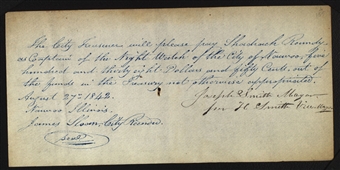 The City Treasurer will please pay Shadrach Roundy
as Captain of the Night Watch of the City of Nauvoo, five
hundred and thirty eight Dollars and fifty Cents, out of
the funds in the Treasury not otherwise appropriated.
August 27th 1842.
Nauvoo Illinois.
Joseph Smith Mayor
James Sloan City Recorder.